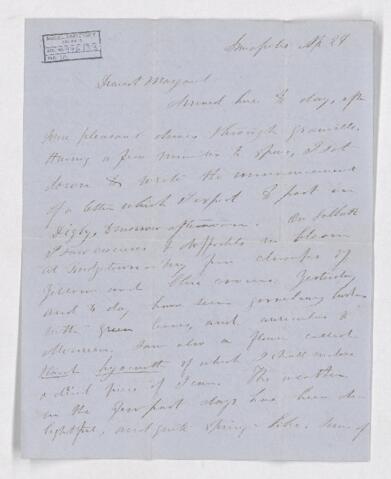 Annapolis Ap 29
Dearest Margaret
Arrived here to day, after
some pleasant drives through Granville.
Having a few minutes to spare, I sit
down to write the commencement
of a letter which I expect to post in
Digby, tomorrow afternoon. On Sabbath
I saw crocuses & daffodils in bloom
at Bridgetown - big fine clumps of
yellow and blue crocus. Yesterday
and to day have seen gooseberry bushes
with green leaves, and auriculas &
Also a flower called
hyacinth of which I shall enclose
a piece if I can. The weather
in the few past days has been de-
lightful, and quite spring-like. Some of